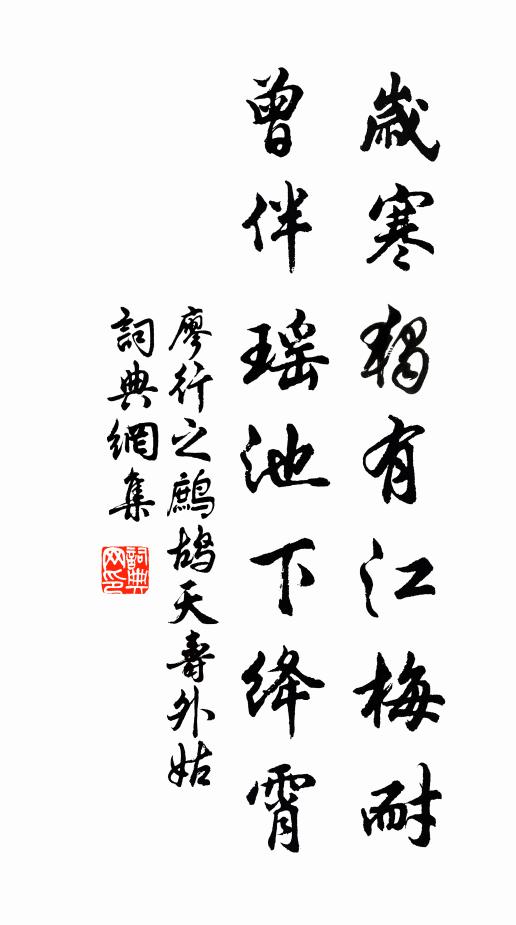 歲寒獨有江梅耐
曾伴瑶池下絳霄
廖行之鷓鴣天壽外姑
詞典網集
詞典網印